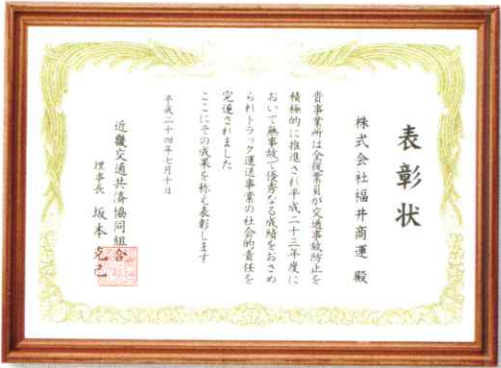 表彰状
株式会社福井商運 殿
貴事業所は全従業員が交通事故防止を
積極的に推進され平成二十三年度に
おいて無事故で優秀なる成績をおさめ
られトラック運送事業の社会的責任を
完遂されました
ここにその成果を称え表彰します
平成二十四年七月十日
近畿交通共済協同組合
理事長 坂本克己